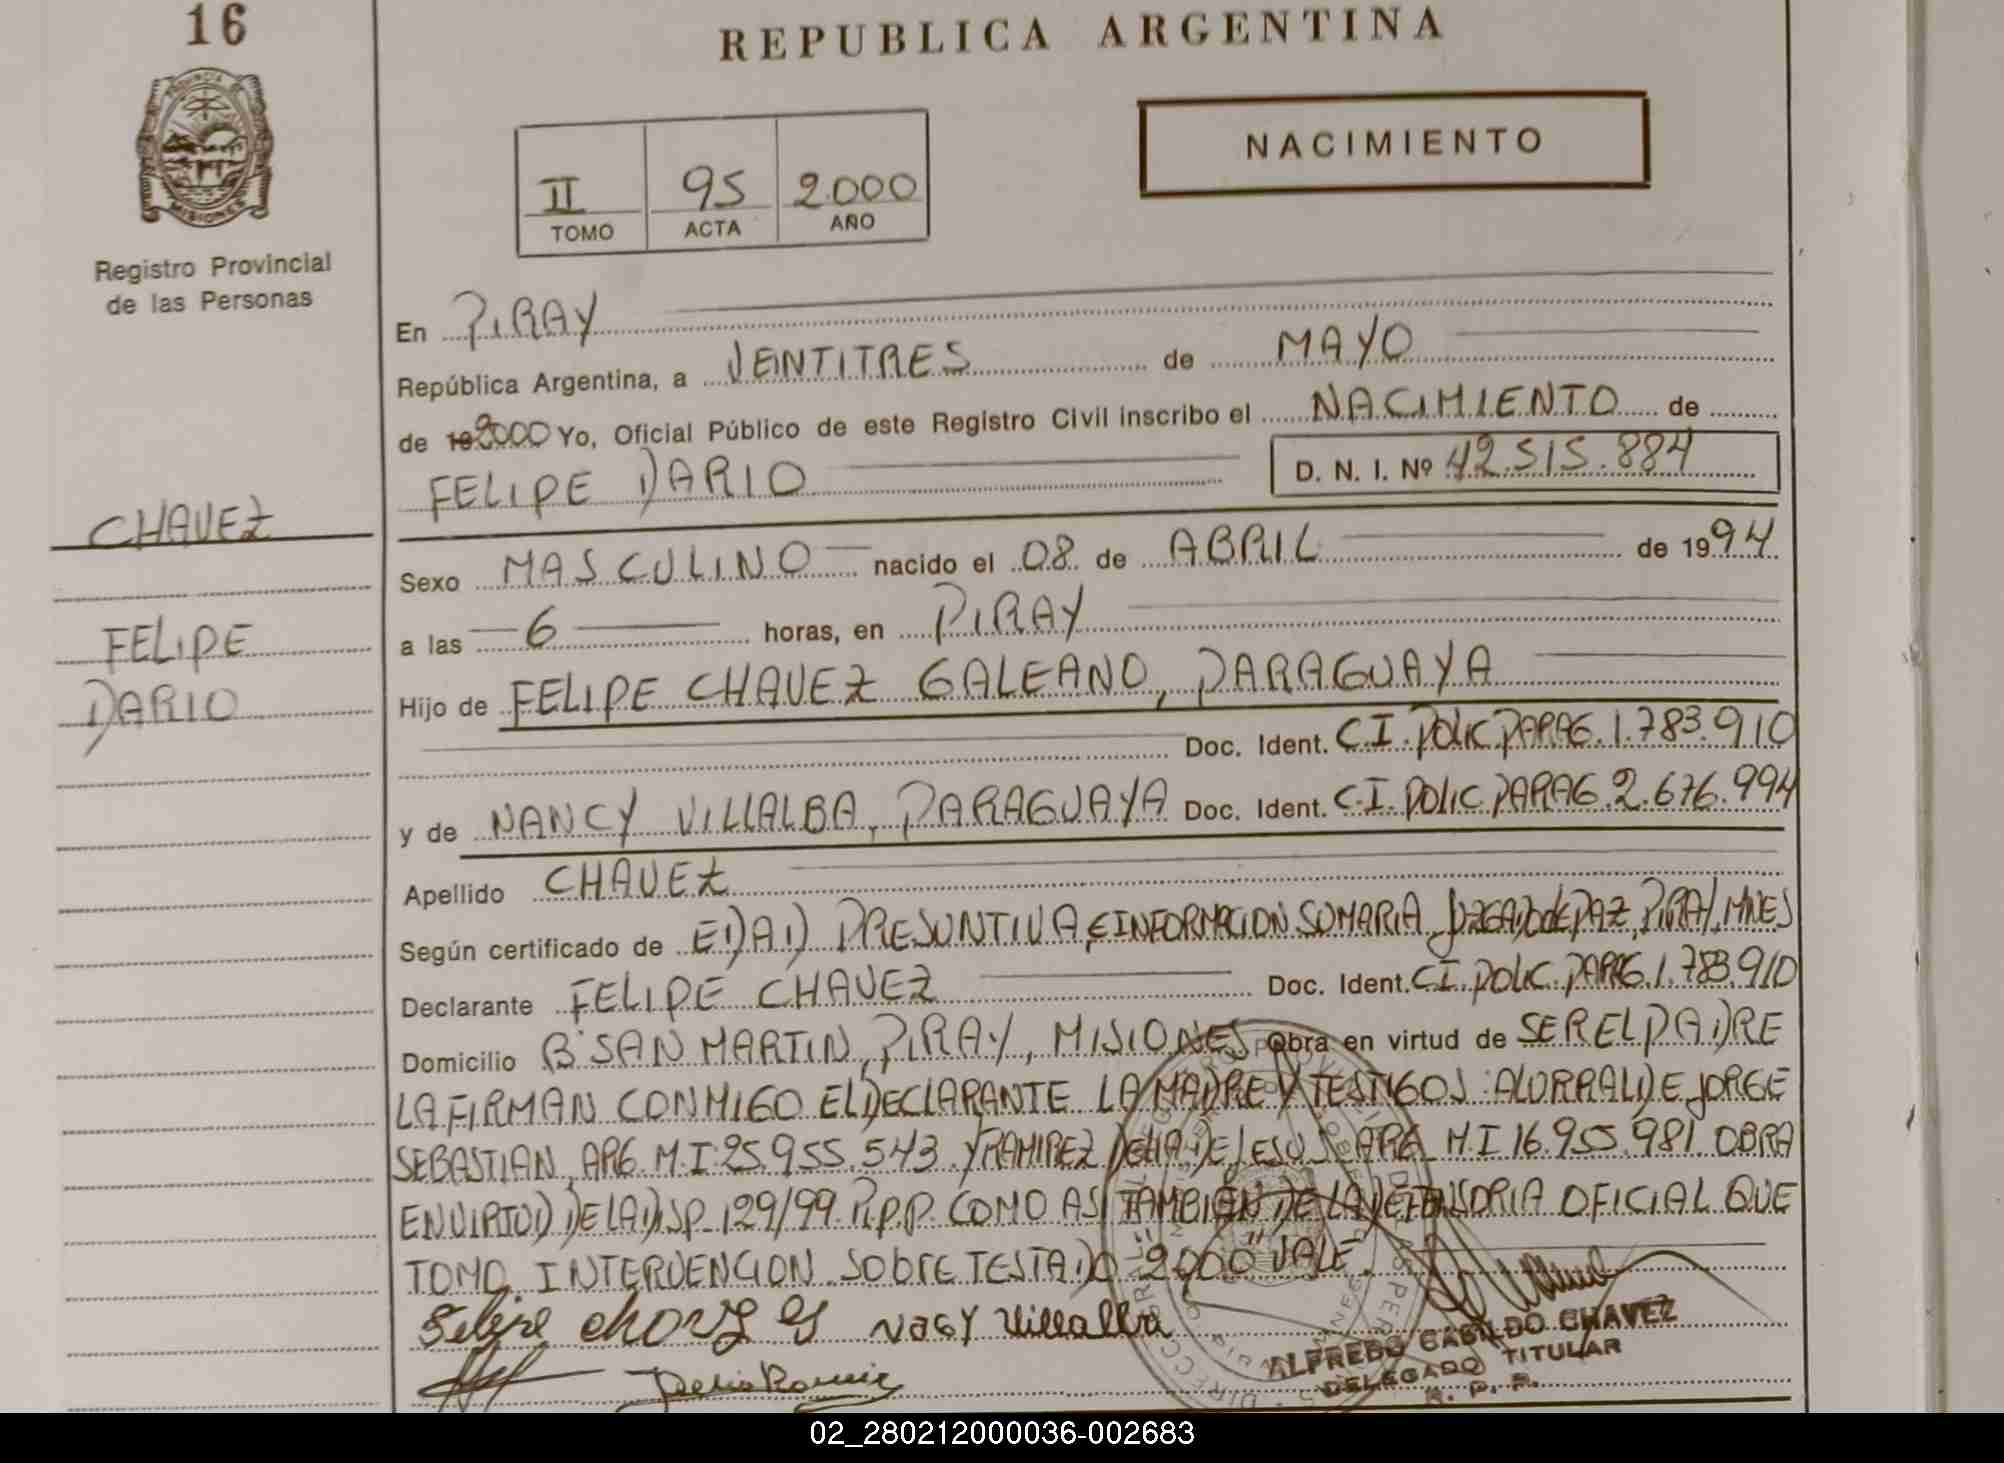 16
REPUBLICA ARGENTINA
PROVINCIA DE
MISIONES
Registro Provincial
de las Personas
II 95 2.000
TOMO ACTA AÑO
NACIMIENTO
En PIRAY
República Argentina, a VEINTITRES de MAYO
de 19 2000 Yo, Oficial Público de este Registro Civil inscribo el NACIMIENTO de
FELIPE DARIO D. N. I. Nº 42.515.884
CHAVEZ
FELIPE
DARIO
Sexo MASCULINO nacido el 08 de ABRIL de 1994
a las 6 horas, en PIRAY
Hijo de FELIPE CHAVEZ GALEANO, PARAGUAYA
Doc. Ident. C.I. POLIC PARAG. 1.783.910
y de NANCY VILLALBA, PARAGUAYA Doc. Ident. C.I. POLIC PARAG 2.676.994
Apellido CHAVEZ
Según certificado de EDAD PRESUNTIVA, E INFORMACION SUMARIA JUZGADO de PAZ, PIRAY, MNES
Declarante FELIPE CHAVEZ Doc. Ident. C.I. POLIC. PARAG. 1.783.910
Domicilio Bº SAN MARTIN, PIRAY, MISIONES Obra en virtud de SER EL PADRE
LA FIRMAN CONMIGO EL DECLARANTE LA MADRE Y TESTIGOS: ALORRALDE JORGE
SEBASTIAN, ARG. M.I. 25.955.543 Y RAMIREZ DELIA DE JESUS ARG. M.I 16.955.981 OBRA
EN VIRTUD DE LA DISP. 129/99 R.P.P. COMO ASI TAMBIEN DE LA DEFENSORIA OFICIAL QUE
TOMO INTERVENCION. SOBRE TESTADO "2.000" VALE.
Felipe chavez Nacy Villalba
Delia Ramirez
ALFREDO CABILDO CHAVEZ
DELEGADO TITULAR
R. P. P.
02_280212000036-002683